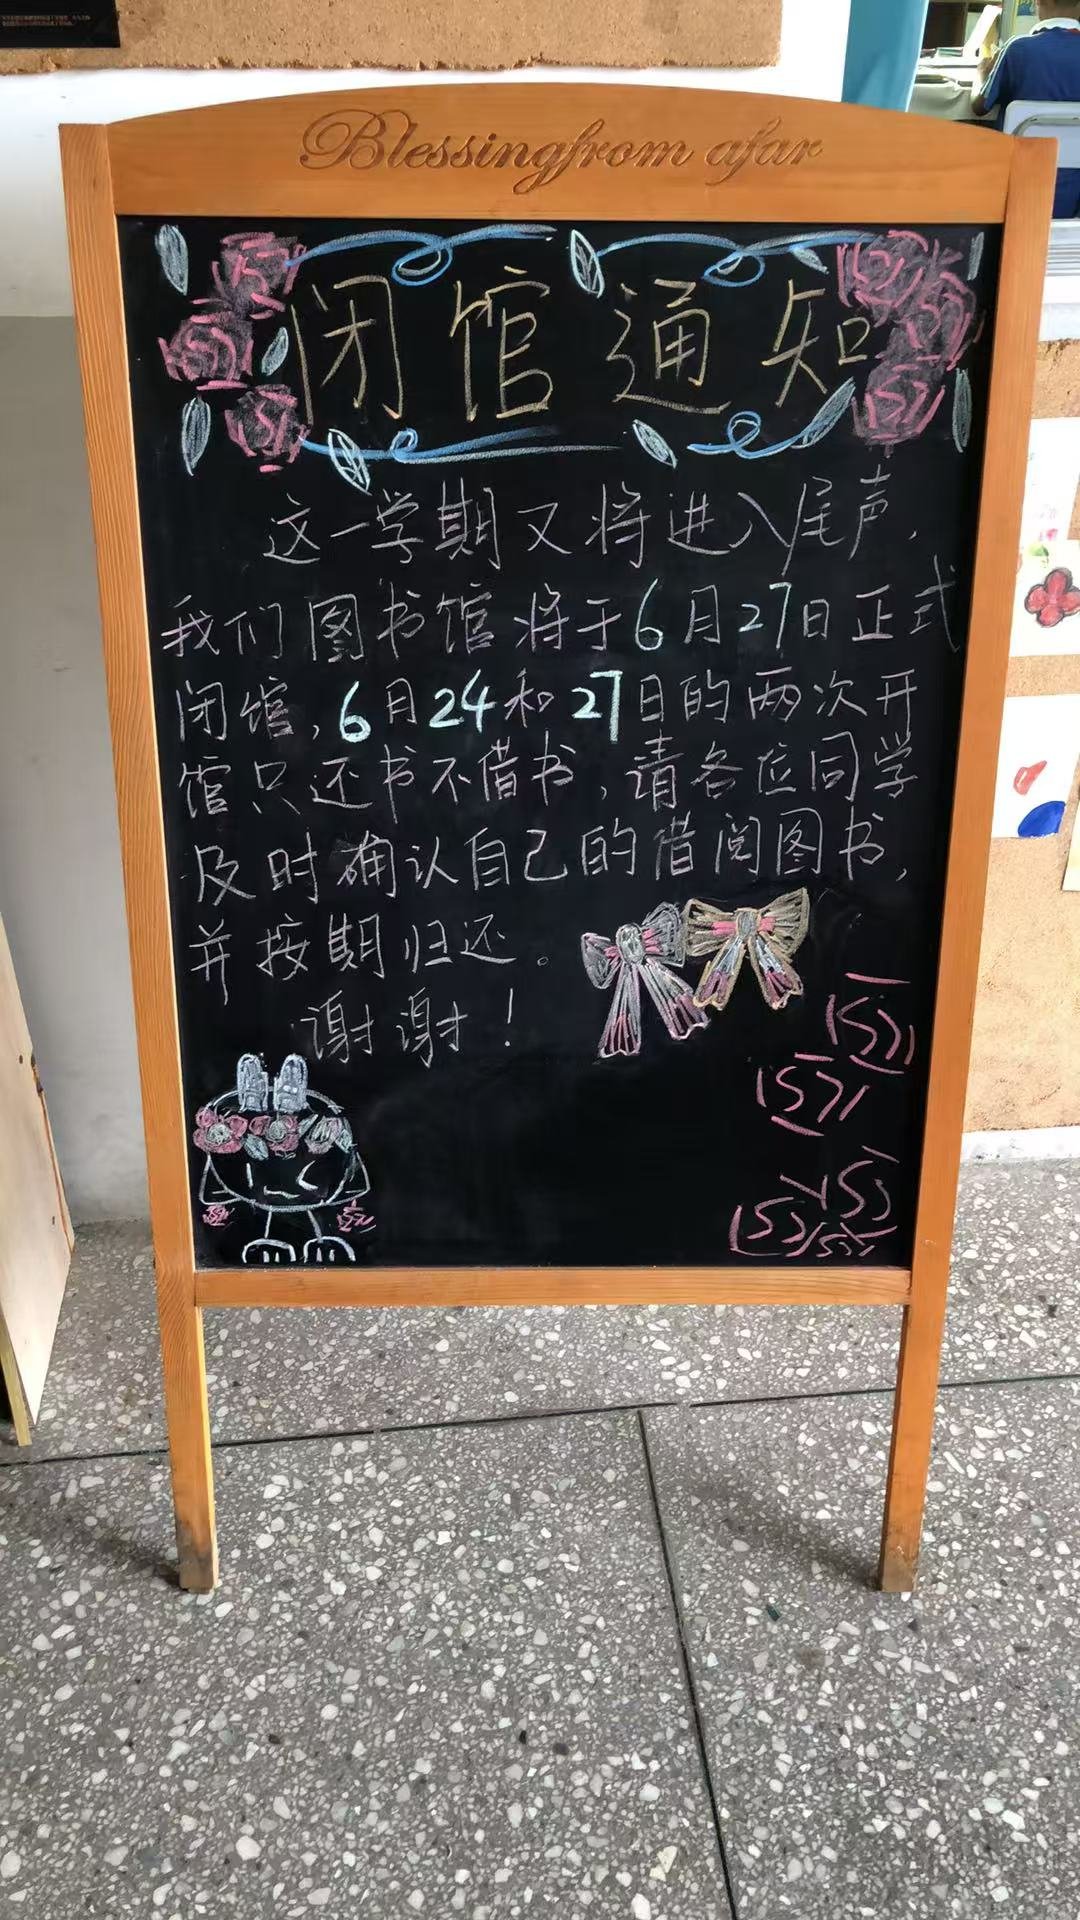 Blessingfrom afar
闭馆通知
这一学期又将进入尾声,
我们图书馆将于6月27日正式
闭馆,6月24和27日的两次开
馆只还书不借书,请各位同学
及时确认自己的借阅图书,
并按期归还。
谢谢!